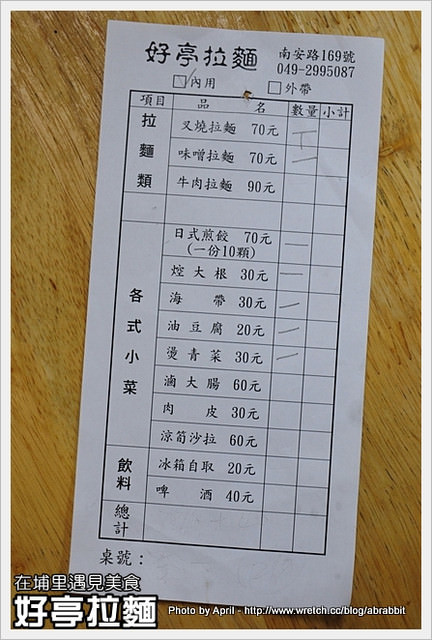 好亭拉麵
南安路169號
049-2995087
內用 外帶
項目 品 名 數量 小計
拉麵類
叉燒拉麵 70元
味噌拉麵 70元
牛肉拉麵 90元
各式小菜
日式煎餃 70元
(一份10顆)
焢大根 30元
海帶 30元
油豆腐 20元
燙青菜 30元
滷大腸 60元
肉皮 30元
涼筍沙拉 60元
飲料
冰箱自取 20元
啤酒 40元
總計
桌號：
在埔里遇見美食
好亭拉麵
Photo by April - http://www.wretch.cc/blog/abrabbit